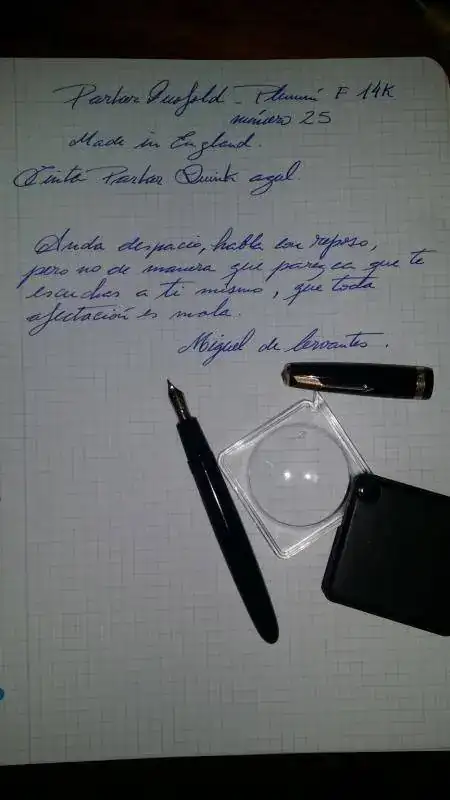 Parker Duofold - Plumín F 14K
número 25
Made in England.
Tinta Parker Quink azul
Anda despacio, habla con reposo,
pero no de manera que parezca que te
escuchas a ti mismo, que toda
afectación es mala.
Miguel de Cervantes.